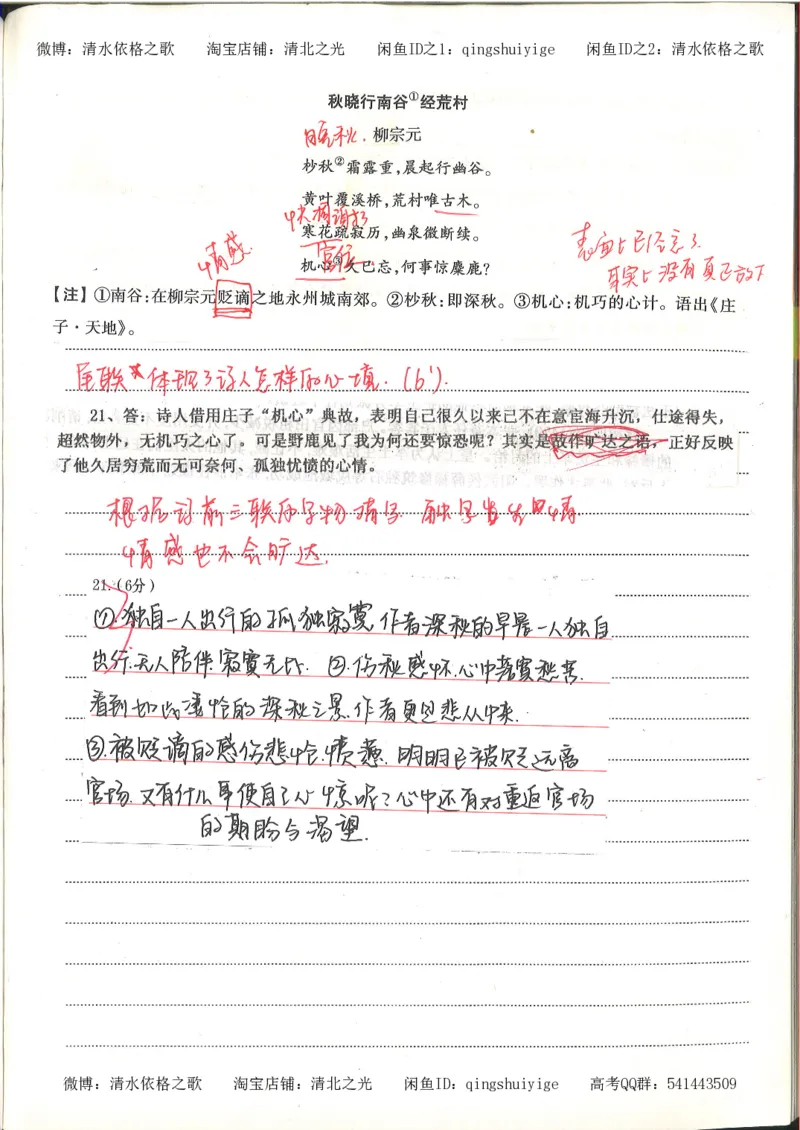 微博：清水依格之歌 淘宝店铺：清北之光 闲鱼ID之1：qingshuiyige 闲鱼ID之2：清水依格之歌
秋晓行南谷①经荒村
晚秋.柳宗元
杪秋②霜露重,晨起行幽谷。
黄叶覆溪桥,荒村唯古木。
寒花疏寂历,幽泉微断续。
情感
官位
表面上已经忘了
其实上没有真正放下
机心③久已忘,何事惊麋鹿?
【注】①南谷:在柳宗元贬谪之地永州城南郊。②杪秋:即深秋。③机心:机巧的心计。语出《庄
子·天地》。
尾联体现了诗人怎样的心境.(6').
21、答：诗人借用庄子“机心”典故，表明自己很久以来已不在意宦海升沉，仕途得失，
超然物外，无机巧之心了。可是野鹿见了我为何还要惊恐呢？其实是故作旷达之语，正好反映
了他久居穷荒而无可奈何、孤独忧愤的心情。
根据前三联的景物描写
情感也不会旷达.
21.（6分）
①.独自一人出行的孤独寂寞.作者深秋的早晨一人独自
出行.无人陪伴寂寞无比. ②.伤秋感怀.心中落寞愁苦.
看到如此凄怆的深秋之景.作者更是悲从中来.
③.被贬谪的感伤悲怆.愤懑.明明已被贬远离
官场.又有什么事使自己心惊呢?心中还有对重返官场
的期盼与渴望.
微博：清水依格之歌 淘宝店铺：清北之光 闲鱼ID：qingshuiyige 高考QQ群：541443509